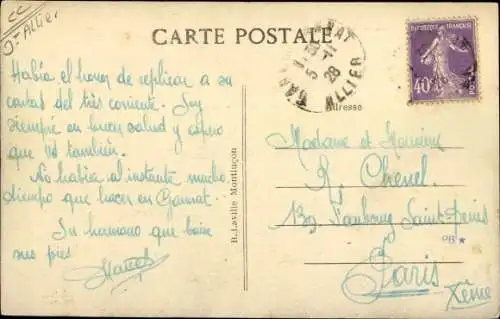 cc
J= Allier
CARTE POSTALE
GANNAT
5 - 11
28
ALLIER
REPUBLIQUE FRANÇAISE
40c
POSTES
Adresse
Había el honor de replicar a su
cartas del très corriente. Soy
siempre en buen salud y espero
que Vd también.
No había al instante mucho
tiempo que hacer en Gannat.
Su humano que baise
sus pies
B. Laville Montluçon
Madame et Monsieur
R. Chenel
132 Faubourg Saint Denis
"B" *
Paris
Xème